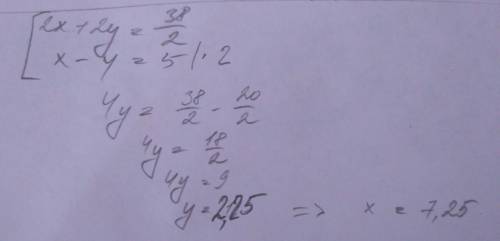 2x + 2y = 38/2
x - y = 5 /· 2
4y = 38/2 - 20/2
4y = 18/2
4y = 9
y = 2,25 => x = 7,25